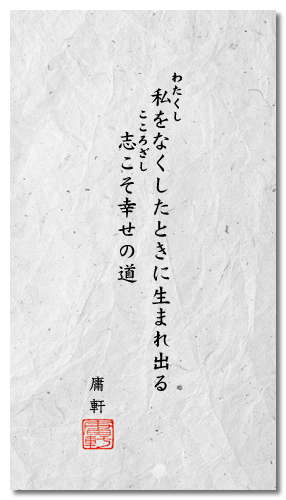 わたくし
私をなくしたときに生まれ出る
こころざし
志こそ幸せの道
庸軒
庸軒